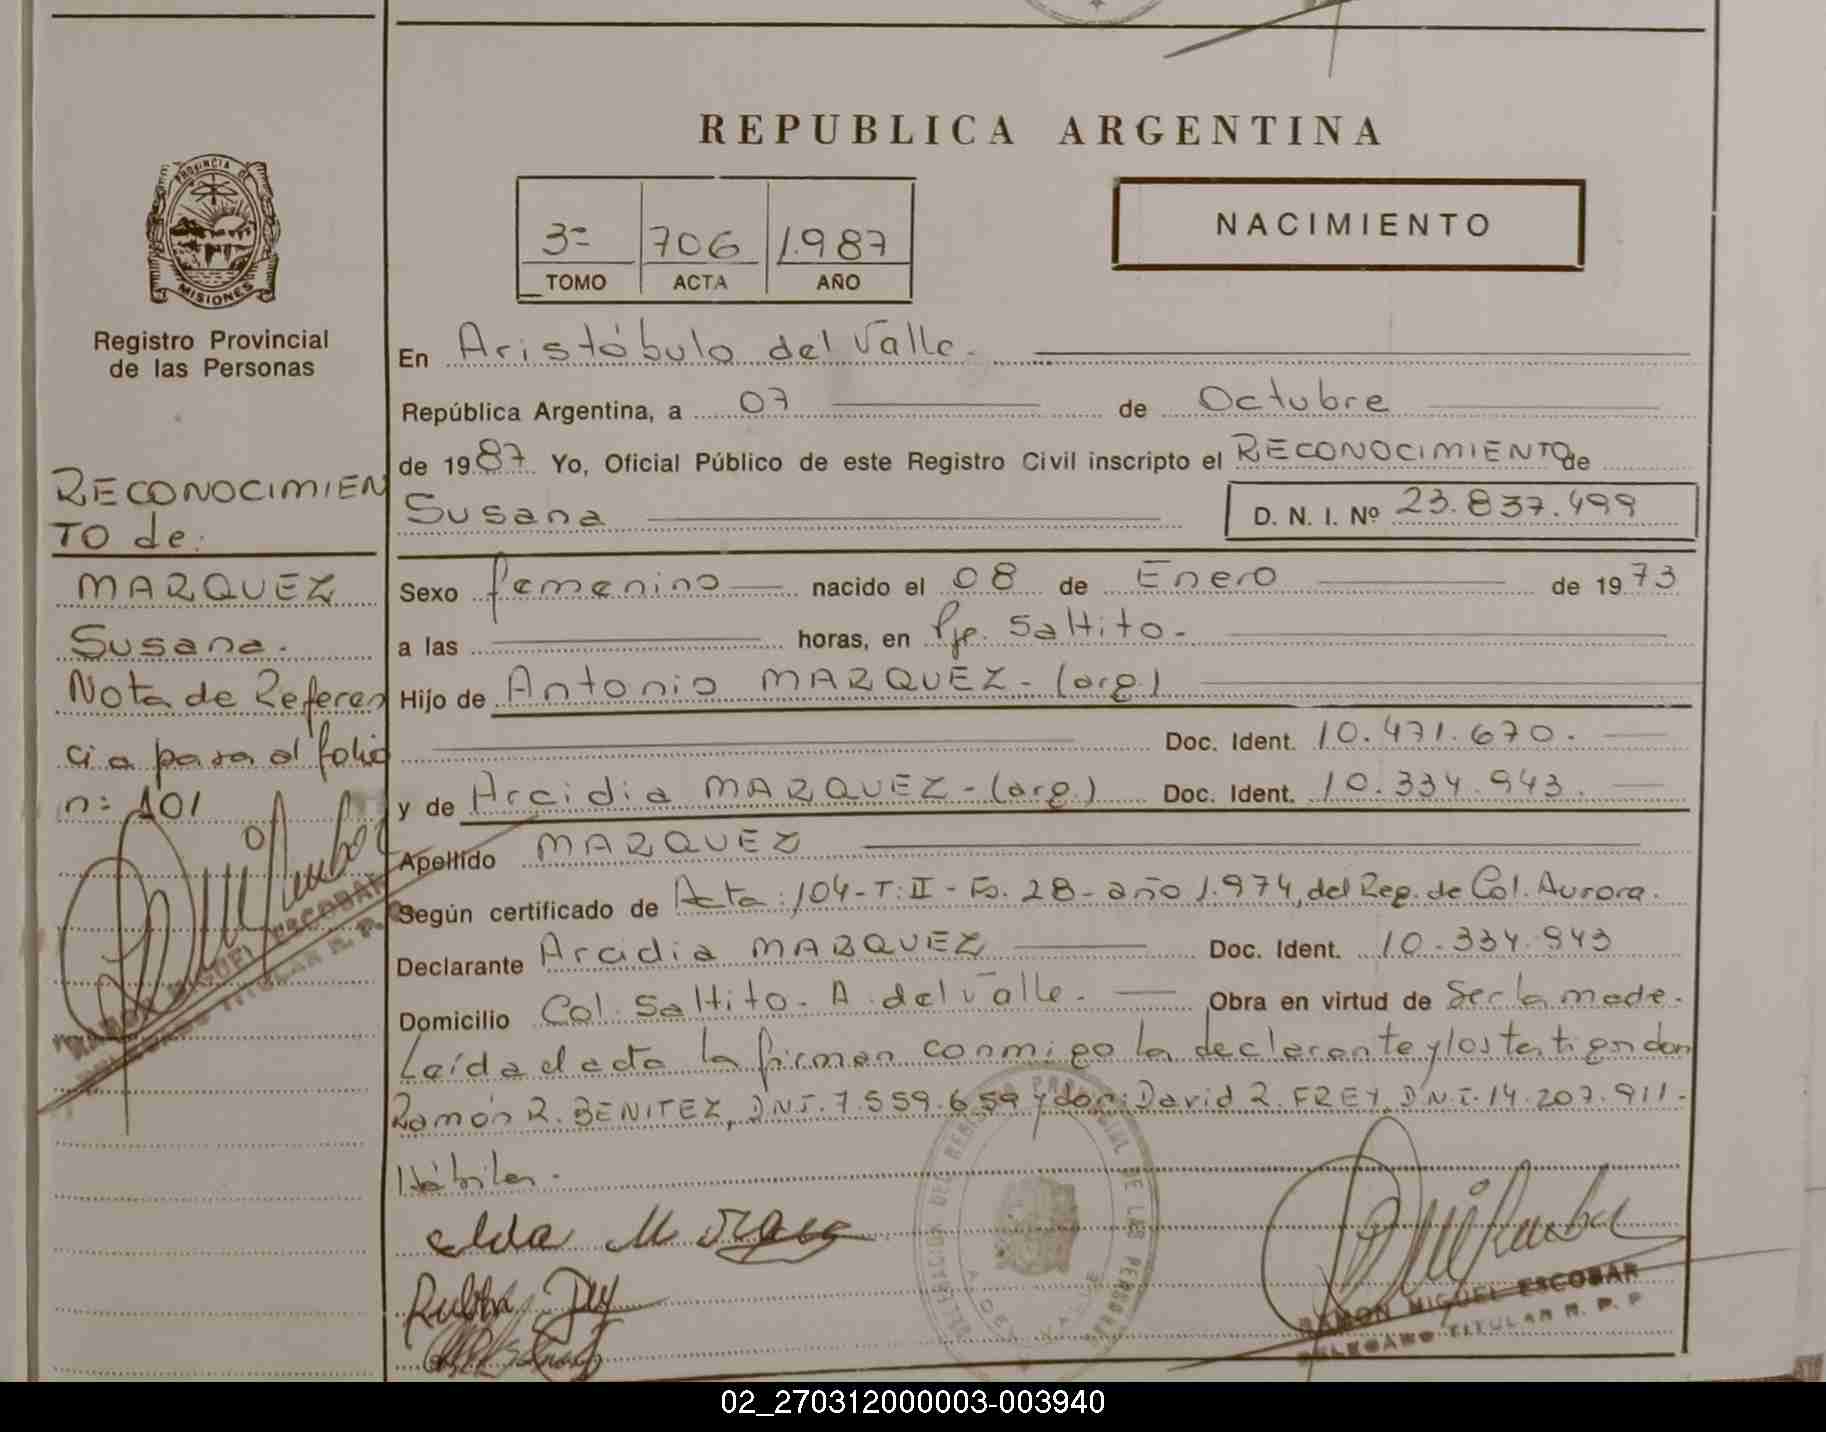 REPUBLICA ARGENTINA
PROVINCIA DE
MISIONES
Registro Provincial
de las Personas
3º 706 1.987
TOMO ACTA AÑO
NACIMIENTO
En Aristóbulo del Valle.
República Argentina, a 07 de Octubre
de 1987 Yo, Oficial Público de este Registro Civil inscripto el RECONOCIMIENTO de
Susana D. N. I. Nº 23.837.499
Sexo femenino nacido el 08 de Enero de 1973
a las horas, en Pje. Saltito.-
Hijo de Antonio MARQUEZ - (arg.)
Doc. Ident. 10.471.670.
y de Arcidia MARQUEZ - (arg.) Doc. Ident. 10.334.943.
Apellido MARQUEZ
Según certificado de Acta: 104-T:II-Fo. 28-año 1.974, del Reg. de Col. Aurora.
Declarante Arcidia MARQUEZ Doc. Ident. 10.334.943
Domicilio Col. Saltito - A. del Valle. Obra en virtud de Ser la madre.
Leída el acta la firman conmigo la declarante y los testigos don
Ramón R. BENITEZ, DNI. 7.559.659 y don: David R. FREY, D.N.I. 14.207.911.-
Hábiles.-
RECONOCIMIEN
TO de:
MARQUEZ
Susana.
Nota de Referen
cia para al folio
nº 101
RAMON MIGUEL ESCOBAR
DELEGADO TITULAR R. P. P.
DELEGACION DEL REGISTRO PROVINCIAL DE LAS PERSONAS
A. DEL VALLE
RAMON MIGUEL ESCOBAR
DELEGADO TITULAR R. P. P
02_270312000003-003940